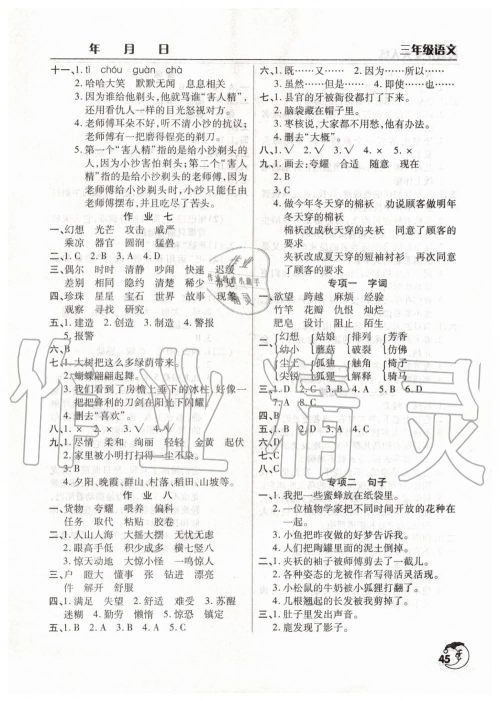 年 月 日
三年级语文
十一、1. tì chóu guàn chà
2. 哈哈大笑 默默无闻 息息相关
3. 因为谁给他剃头,他就骂谁“害人精”,
还用看仇人一样的目光怒视对方。
4. 老师傅耳朵不好,听不清小沙的抗议;
老师傅有一把磨得锃亮的剃刀。
5. 第一个“害人精”指的是给小沙剃头的
人,因为小沙怕剃头;第二个“害人精”
指的是给小沙剃头时,小沙只能任由
老师傅摆布,并且吃尽了苦头。
作 业 七
一、幻想 光芒 攻击 威严
乘凉 器官 圆润 猛兽
二、1. C 2. B 3. A 4. D
三、偶尔 时时 清静 吵闹 快速 迟缓
差别 相同 隐约 清楚 稀少 常见
四、珍珠 星星 宝石 世界 故事 现象
观察 寻找 研究
五、1. 建造 2. 创造 3. 制造 4. 警报
5. 报警
六、B
七、1. 大树把这么多绿荫带来。
2. 蝴蝶翩翩起舞。
3. 我们看到了房檐上垂下的冰柱,好像一
把把锋利的刀剑在阳光下闪耀。
4. 删去“喜欢”。
八、1. × 2. × 3. √ 4. ×
九、1. 尽情 柔和 绚丽 轻轻 金黄 起伏
2. 家里被小明打扫得一尘不染。
3. B
4. 夕阳、晚霞、群山、村落、稻田、山坡等。
作 业 八
一、货物 夸耀 喂养 偏科
任务 取代 粘贴 胶卷
二、1. 人山人海 大摇大摆 无忧无虑
2. 眼高手低 积少成多 横七竖八
3. 惊天动地 大惊小怪 一鸣惊人
三、户 瞪大 懂事 张 钻进 漂亮
件 解开 舒服
四、1. 满足 失望 2. 舒适 难受 3. 苏醒
迷糊 4. 勤劳 懒惰 5. 惊恐 镇定
五、1. B 2. A 3. C 4. A 5. C
六、1. 既……又…… 2. 因为……所以……
3. 虽然……但是…… 4. 即使……也……
七、1. 县官的牙被衙役付起来打。
2. 脑袋藏在帽子里。
3. 枣核说,大家都不用愁,他有办法。
4. 删去“大概”。
八、1. × 2. √ 3. √ 4. √ 5. √
九、1. 画去:夸耀 合适 随意 现在
2. C
3. B
4. 做今年冬天穿的棉袄 劝说顾客做明年
冬天穿的棉袄
棉袄改成秋天穿的夹袄 同意了顾客
的要求
夹袄改成夏天穿的短袖衬衫 再次同意
了顾客的要求
专项一 字词
一、欲望 跨越 麻烦 经验
竹竿 花瓣 仇恨 灿烂
肥皂 设计 阻止 国王
三、1. D 2. C 3. B 4. A 5. B 6. D
7. A 8. C 9. B
四、B
五、D
六、B
七、C
八、C
专项二 句子
一、1. 我把一些蜜蜂放在纸袋里。
2. 一位植物学家把不同时间开放的花种在
一起。
3. 小鱼把昨夜做的好梦告诉我。
4. 人们把陶罐里面的泥土倒掉。
二、1. 夹袄的袖子被师傅剪去了一截。
2. 各种姿态的龙被作者写得活灵活现。
3. 小松鼠的牛奶被小狐狸打翻了。
4. 几根滚烫的长发被我剪掉了。
三、1. 肚子里发出声音。
2. 鹿发现了影子。
45